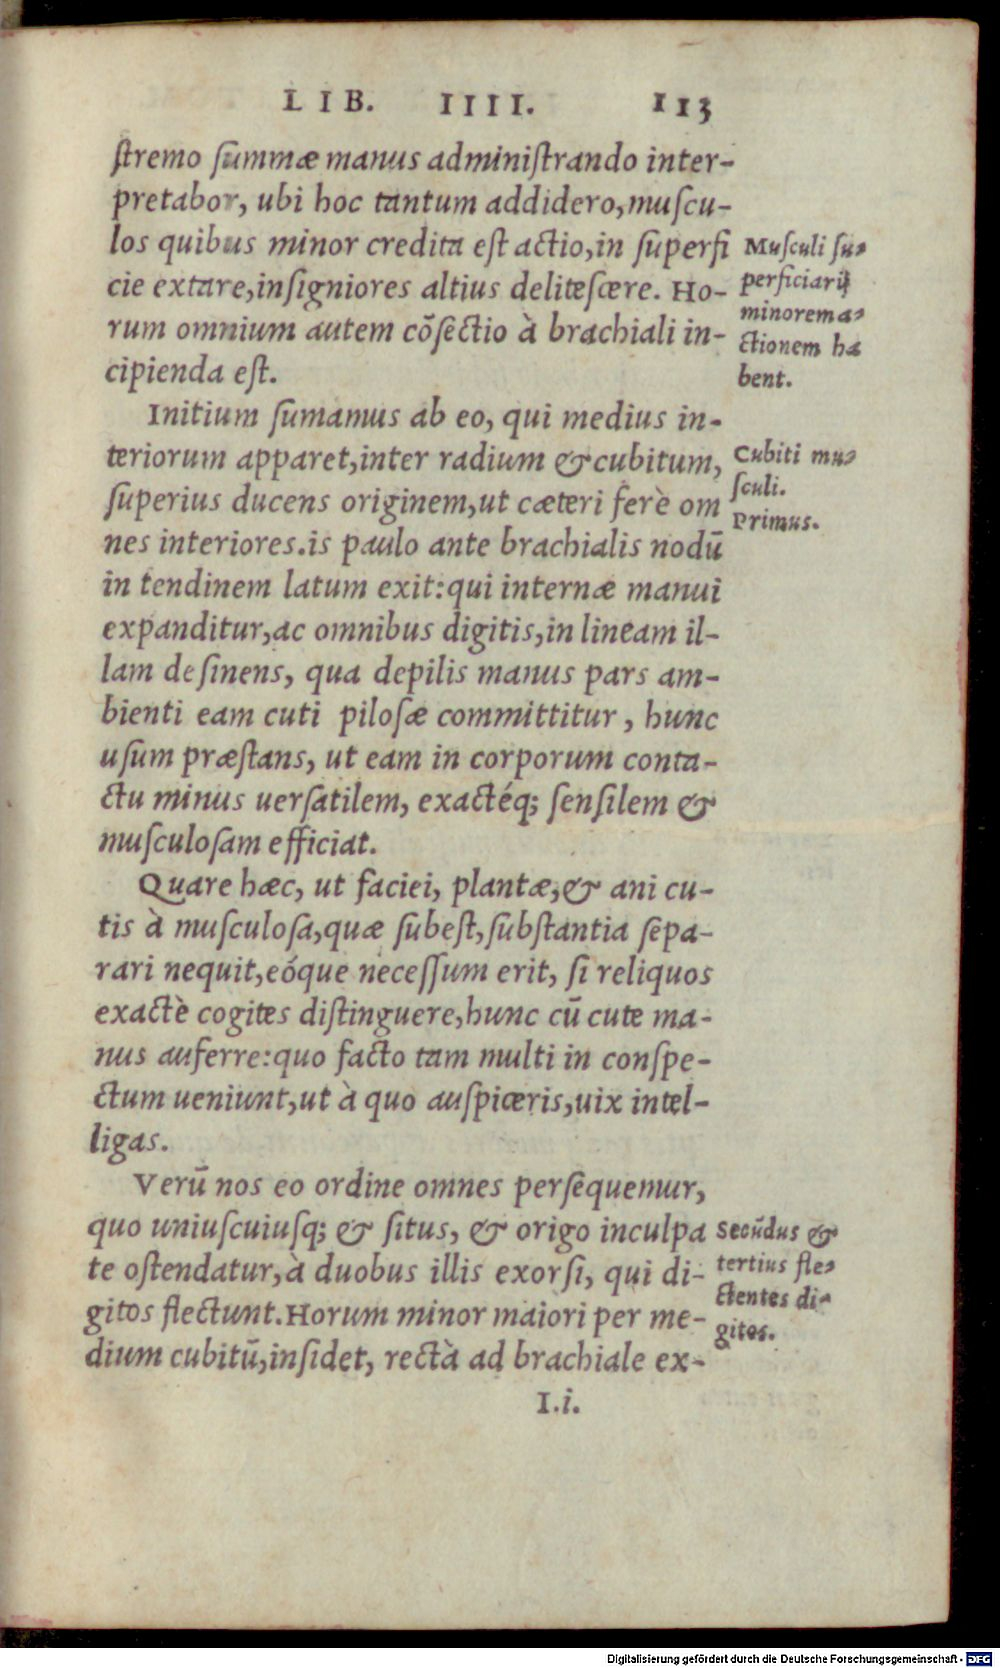 LIB. IIII. 113
ſtremo ſummæ manus adminiſtrando inter-
pretabor, ubi hoc tantum addidero, muſcu-
los quibus minor credita eſt actio, in ſuperfi
cie extare, inſigniores altius deliteſcere. Ho-
rum omnium autem cõſectio à brachiali in-
cipienda eſt.
Muſculi ſu-
perficiarij
minorem a-
ctionem ha
bent.
Initium ſumamus ab eo, qui medius in-
teriorum apparet, inter radium & cubitum,
ſuperius ducens originem, ut cæteri ferè om
nes interiores. is paulo ante brachialis nodũ
in tendinem latum exit: qui internæ manui
expanditur, ac omnibus digitis, in lineam il-
lam deſinens, qua depilis manus pars am-
bienti eam cuti piloſæ committitur, hunc
uſum præſtans, ut eam in corporum conta-
ctu minus uerſatilem, exactéq; ſenſilem &
muſculoſam efficiat.
Cubiti mu-
ſculi.
Primus.
Quare hæc, ut faciei, plantæ, & ani cu-
tis à muſculoſa, quæ ſubeſt, ſubſtantia ſepa-
rari nequit, eóque neceſſum erit, ſi reliquos
exactè cogites diſtinguere, hunc cũ cute ma-
nus auferre: quo facto tam multi in conſpe-
ctum ueniunt, ut à quo auſpiceris, uix intel-
ligas.
Verũ nos eo ordine omnes perſequemur,
quo uniuſcuiuſq; & ſitus, & origo inculpa
te oſtendatur, à duobus illis exorſi, qui di-
gitos flectunt. Horum minor maiori per me-
dium cubitũ, inſidet, rectà ad brachiale ex-
Secũdus &
tertius fle-
ctentes di-
gitos.
I.i.
Digitalisierung gefördert durch die Deutsche Forschungsgemeinschaft - DFG